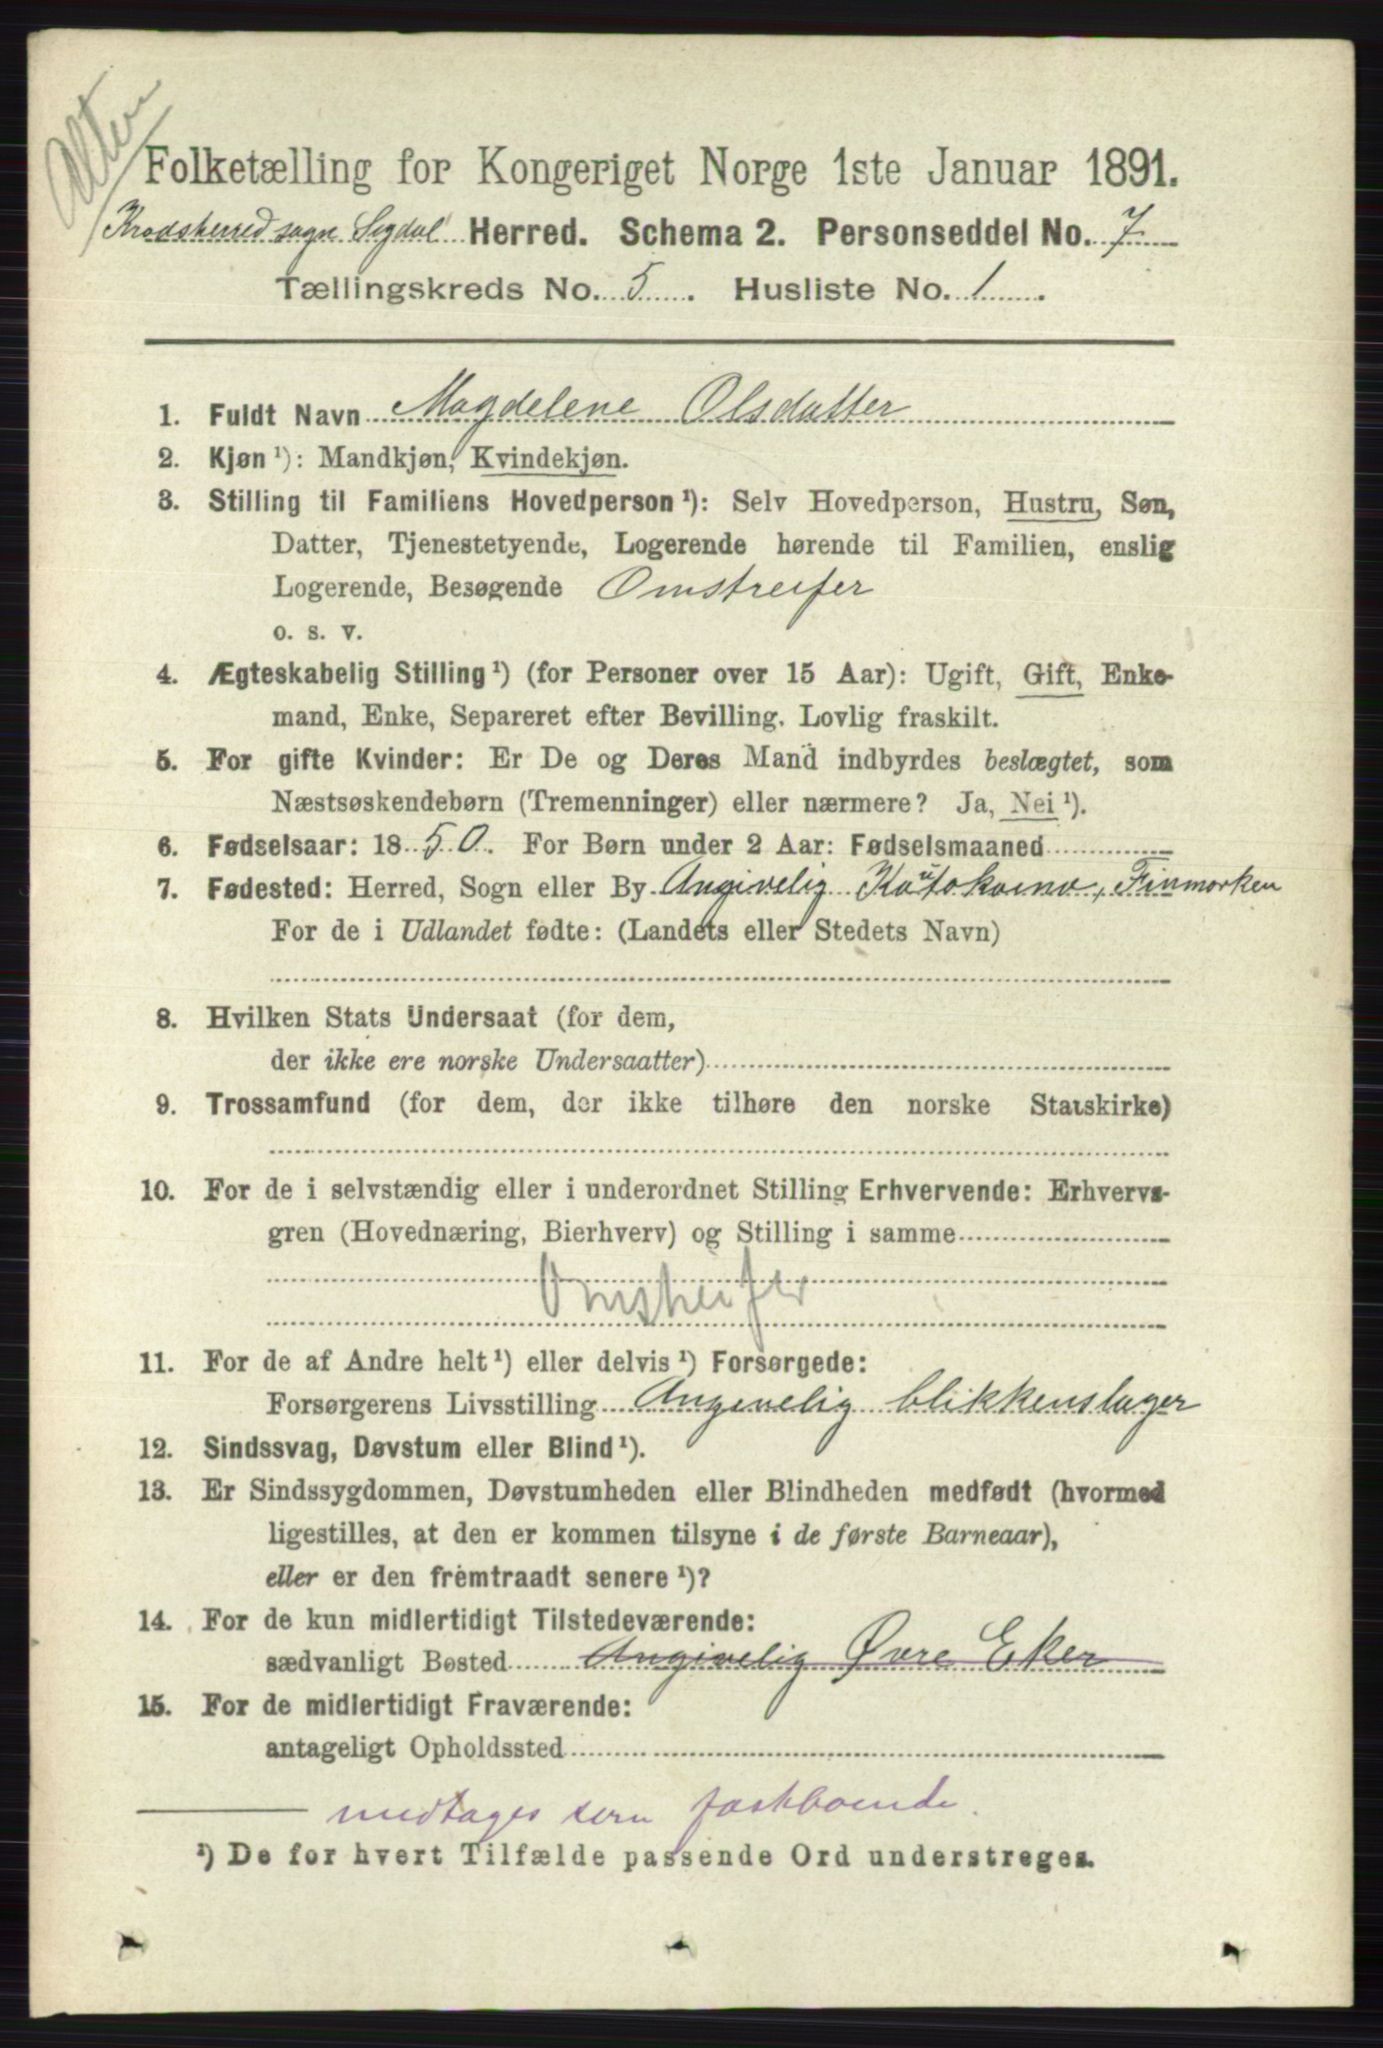 Folketælling for Kongeriget Norge 1ste Januar 1891.
Krødsherred sogn Sigdal Herred. Schema 2. Personseddel No. 7
Tællingskreds No. 5. Husliste No. 1.
1. Fuldt Navn Magdelene Olsdatter
2. Kjøn ¹): Mandkjøn, Kvindekjøn.
3. Stilling til Familiens Hovedperson ¹): Selv Hovedperson, Hustru, Søn,
Datter, Tjenestetyende, Logerende hørende til Familien, enslig
Logerende, Besøgende Omstreifer
o. s. v.
4. Ægteskabelig Stilling ¹) (for Personer over 15 Aar): Ugift, Gift, Enke-
mand, Enke, Separeret efter Bevilling. Lovlig fraskilt.
5. For gifte Kvinder: Er De og Deres Mand indbyrdes beslægtet, som
Næstsøskendebørn (Tremenninger) eller nærmere? Ja, Nei ¹).
6. Fødselsaar: 1850. For Børn under 2 Aar: Fødselsmaaned
7. Fødested: Herred, Sogn eller By Angivelig Kautokeino, Finmorken
For de i Udlandet fødte: (Landets eller Stedets Navn)
8. Hvilken Stats Undersaat (for dem,
der ikke ere norske Undersaatter)
9. Trossamfund (for dem, der ikke tilhøre den norske Statskirke)
10. For de i selvstændig eller i underordnet Stilling Erhvervende: Erhvervs-
gren (Hovednæring, Bierhverv) og Stilling i samme
Omstreifer
11. For de af Andre helt ¹) eller delvis ¹) Forsørgede:
Forsørgerens Livsstilling Angivelig blikkenslager
12. Sindssvag, Døvstum eller Blind ¹).
13. Er Sindssygdommen, Døvstumheden eller Blindheden medfødt (hvormed
ligestilles, at den er kommen tilsyne i de første Barneaar),
eller er den fremtraadt senere ¹)?
14. For de kun midlertidigt Tilstedeværende:
sædvanligt Bosted Angivelig Øvre Eker
15. For de midlertidigt Fraværende:
antageligt Opholdssted
medtages som fastboende.
¹) De for hvert Tilfælde passende Ord understreges.